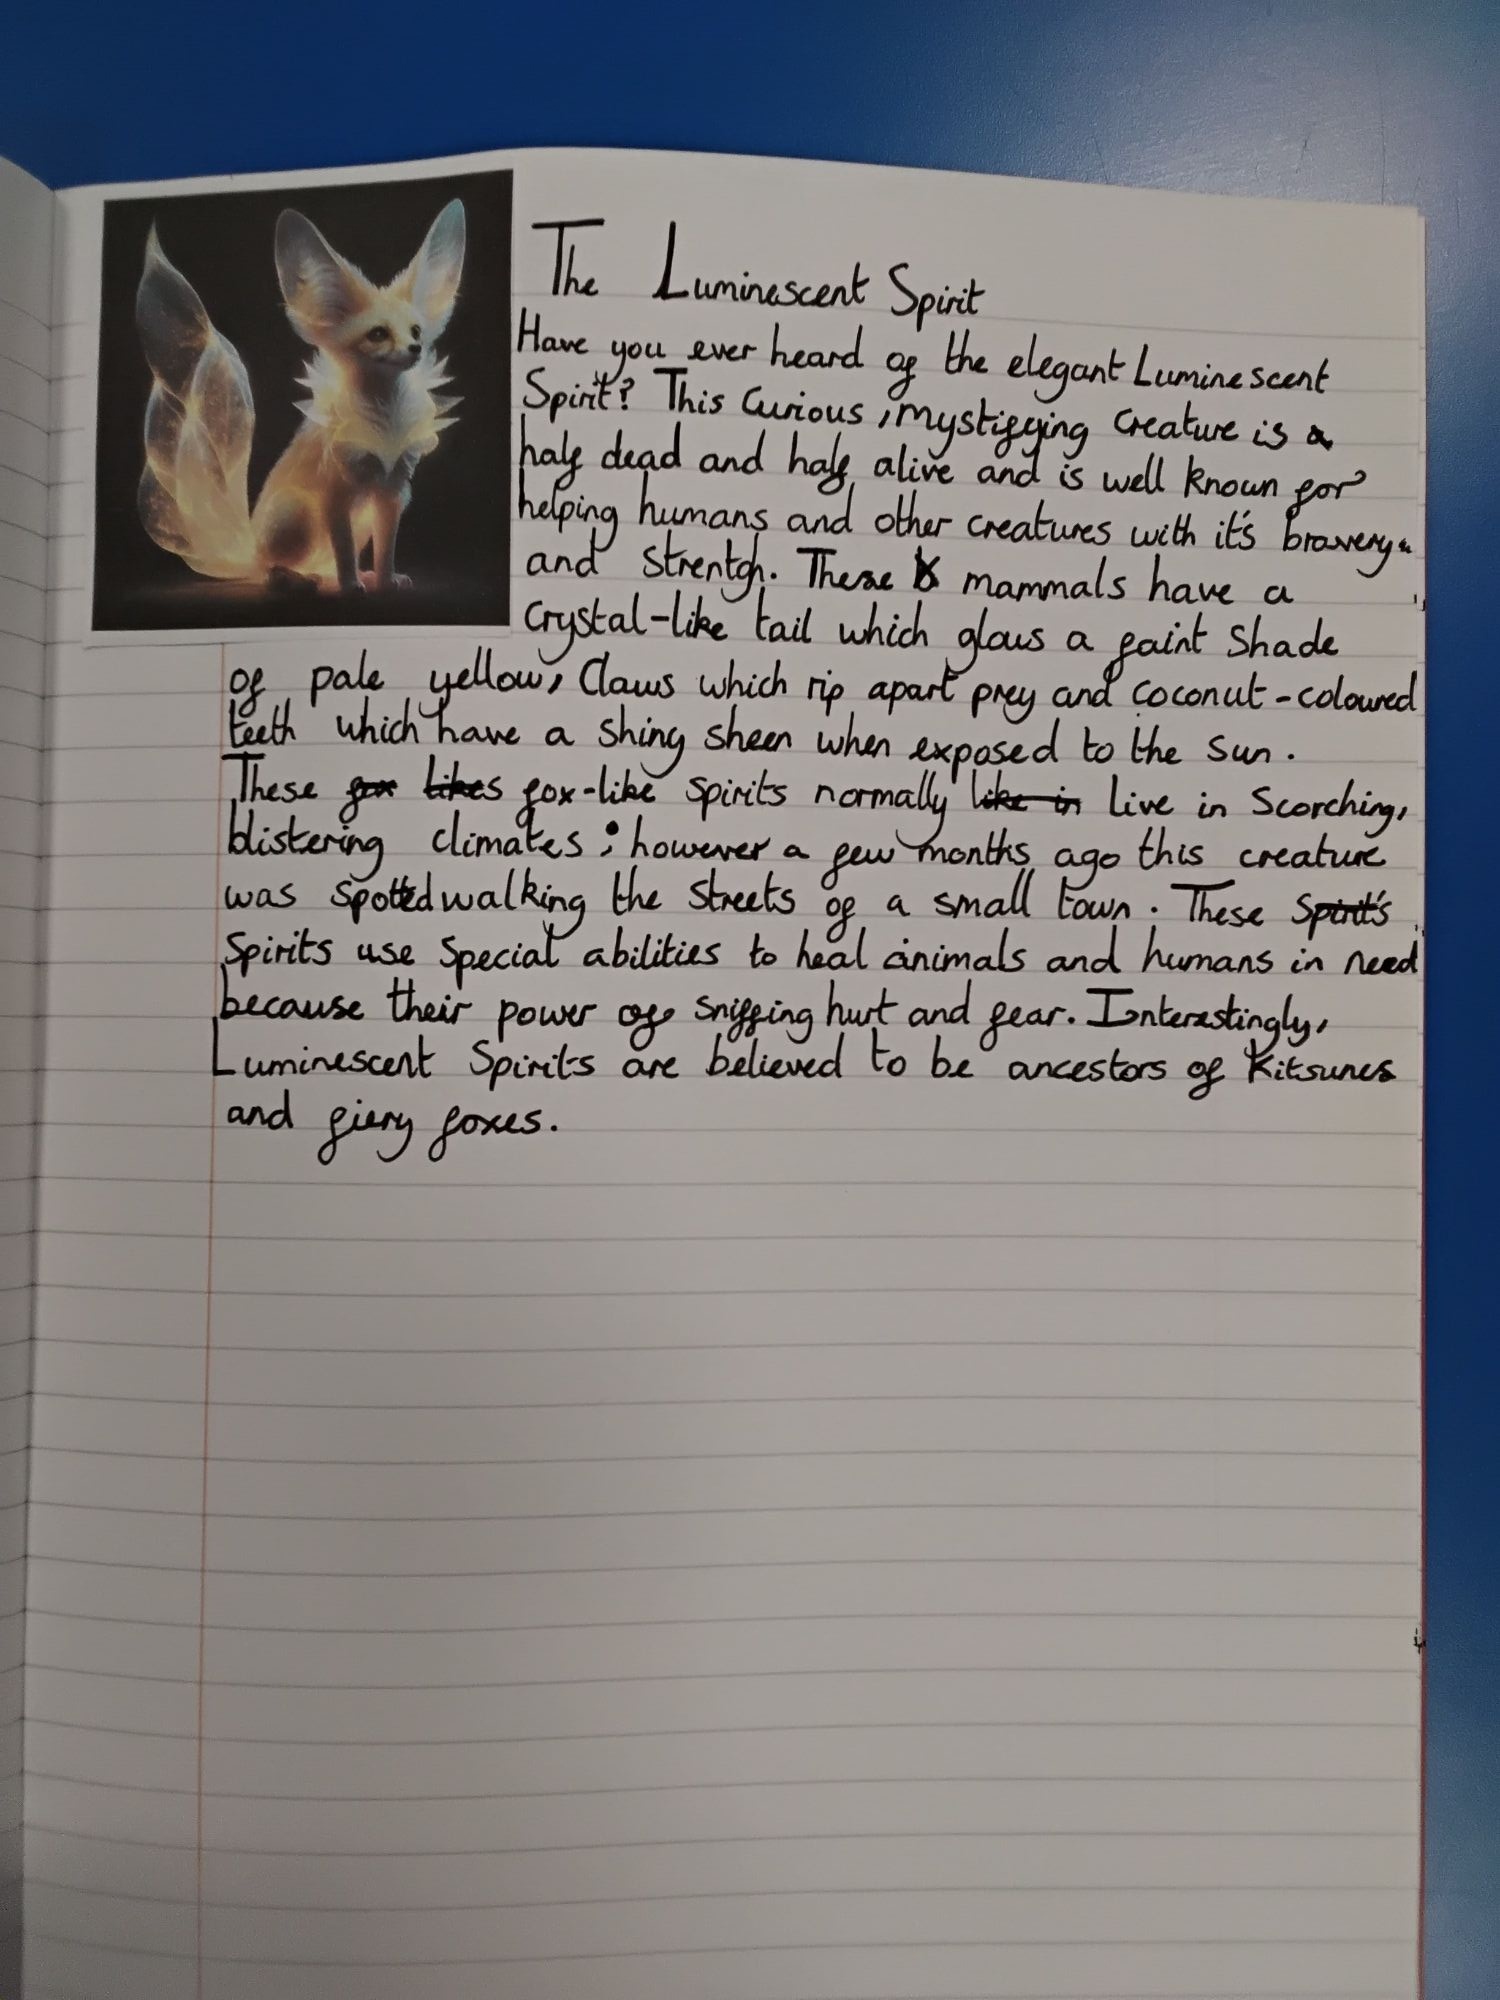 The Luminescent Spirit
Have you ever heard of the elegant Luminescent
Spirit? This Curious, mystifying creature is a
half dead and half alive and is well known for
helping humans and other creatures with it's bravery
and strentgh. These mammals have a
crystal-like tail which glows a faint shade
of pale yellow, Claws which rip apart prey and coconut-coloured
teeth which have a shing sheen when exposed to the sun.
These fox likes fox-like spirits normally like in live in scorching,
blistering climates; however a few months ago this creature
was spotted walking the streets of a small town. These Spirit's
Spirits use special abilities to heal animals and humans in need
because their power of sniffing hurt and fear. Interestingly,
Luminescent Spirits are believed to be ancestors of Kitsunes
and fiery foxes.